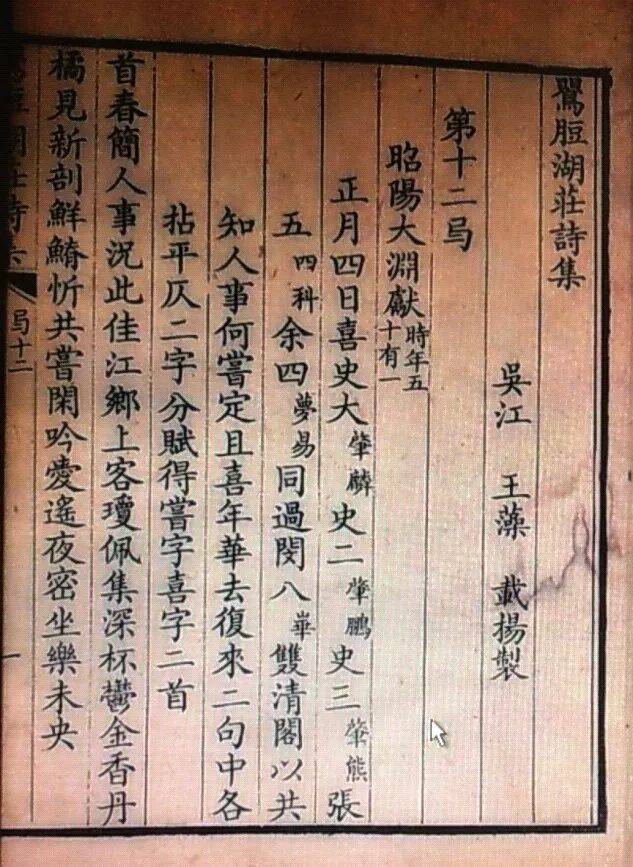 鶯脰湖莊詩集
吳江　王藻　載揚製
第十二局
昭陽大淵獻時年五十有一
正月四日喜史大肇麟史二肇鵬史三肇熊張
五四科余四夢易同過閔八崋雙清閣以共
知人事何嘗定且喜年華去復來二句中各
拈平仄二字分賦得嘗字喜字二首
首春簡人事況此佳江鄉上客瓊佩集深杯鬱金香丹
橘見新剖鮮鰆忻共嘗閑吟愛遙夜密坐樂未央
湖莊詩六
局十二
一